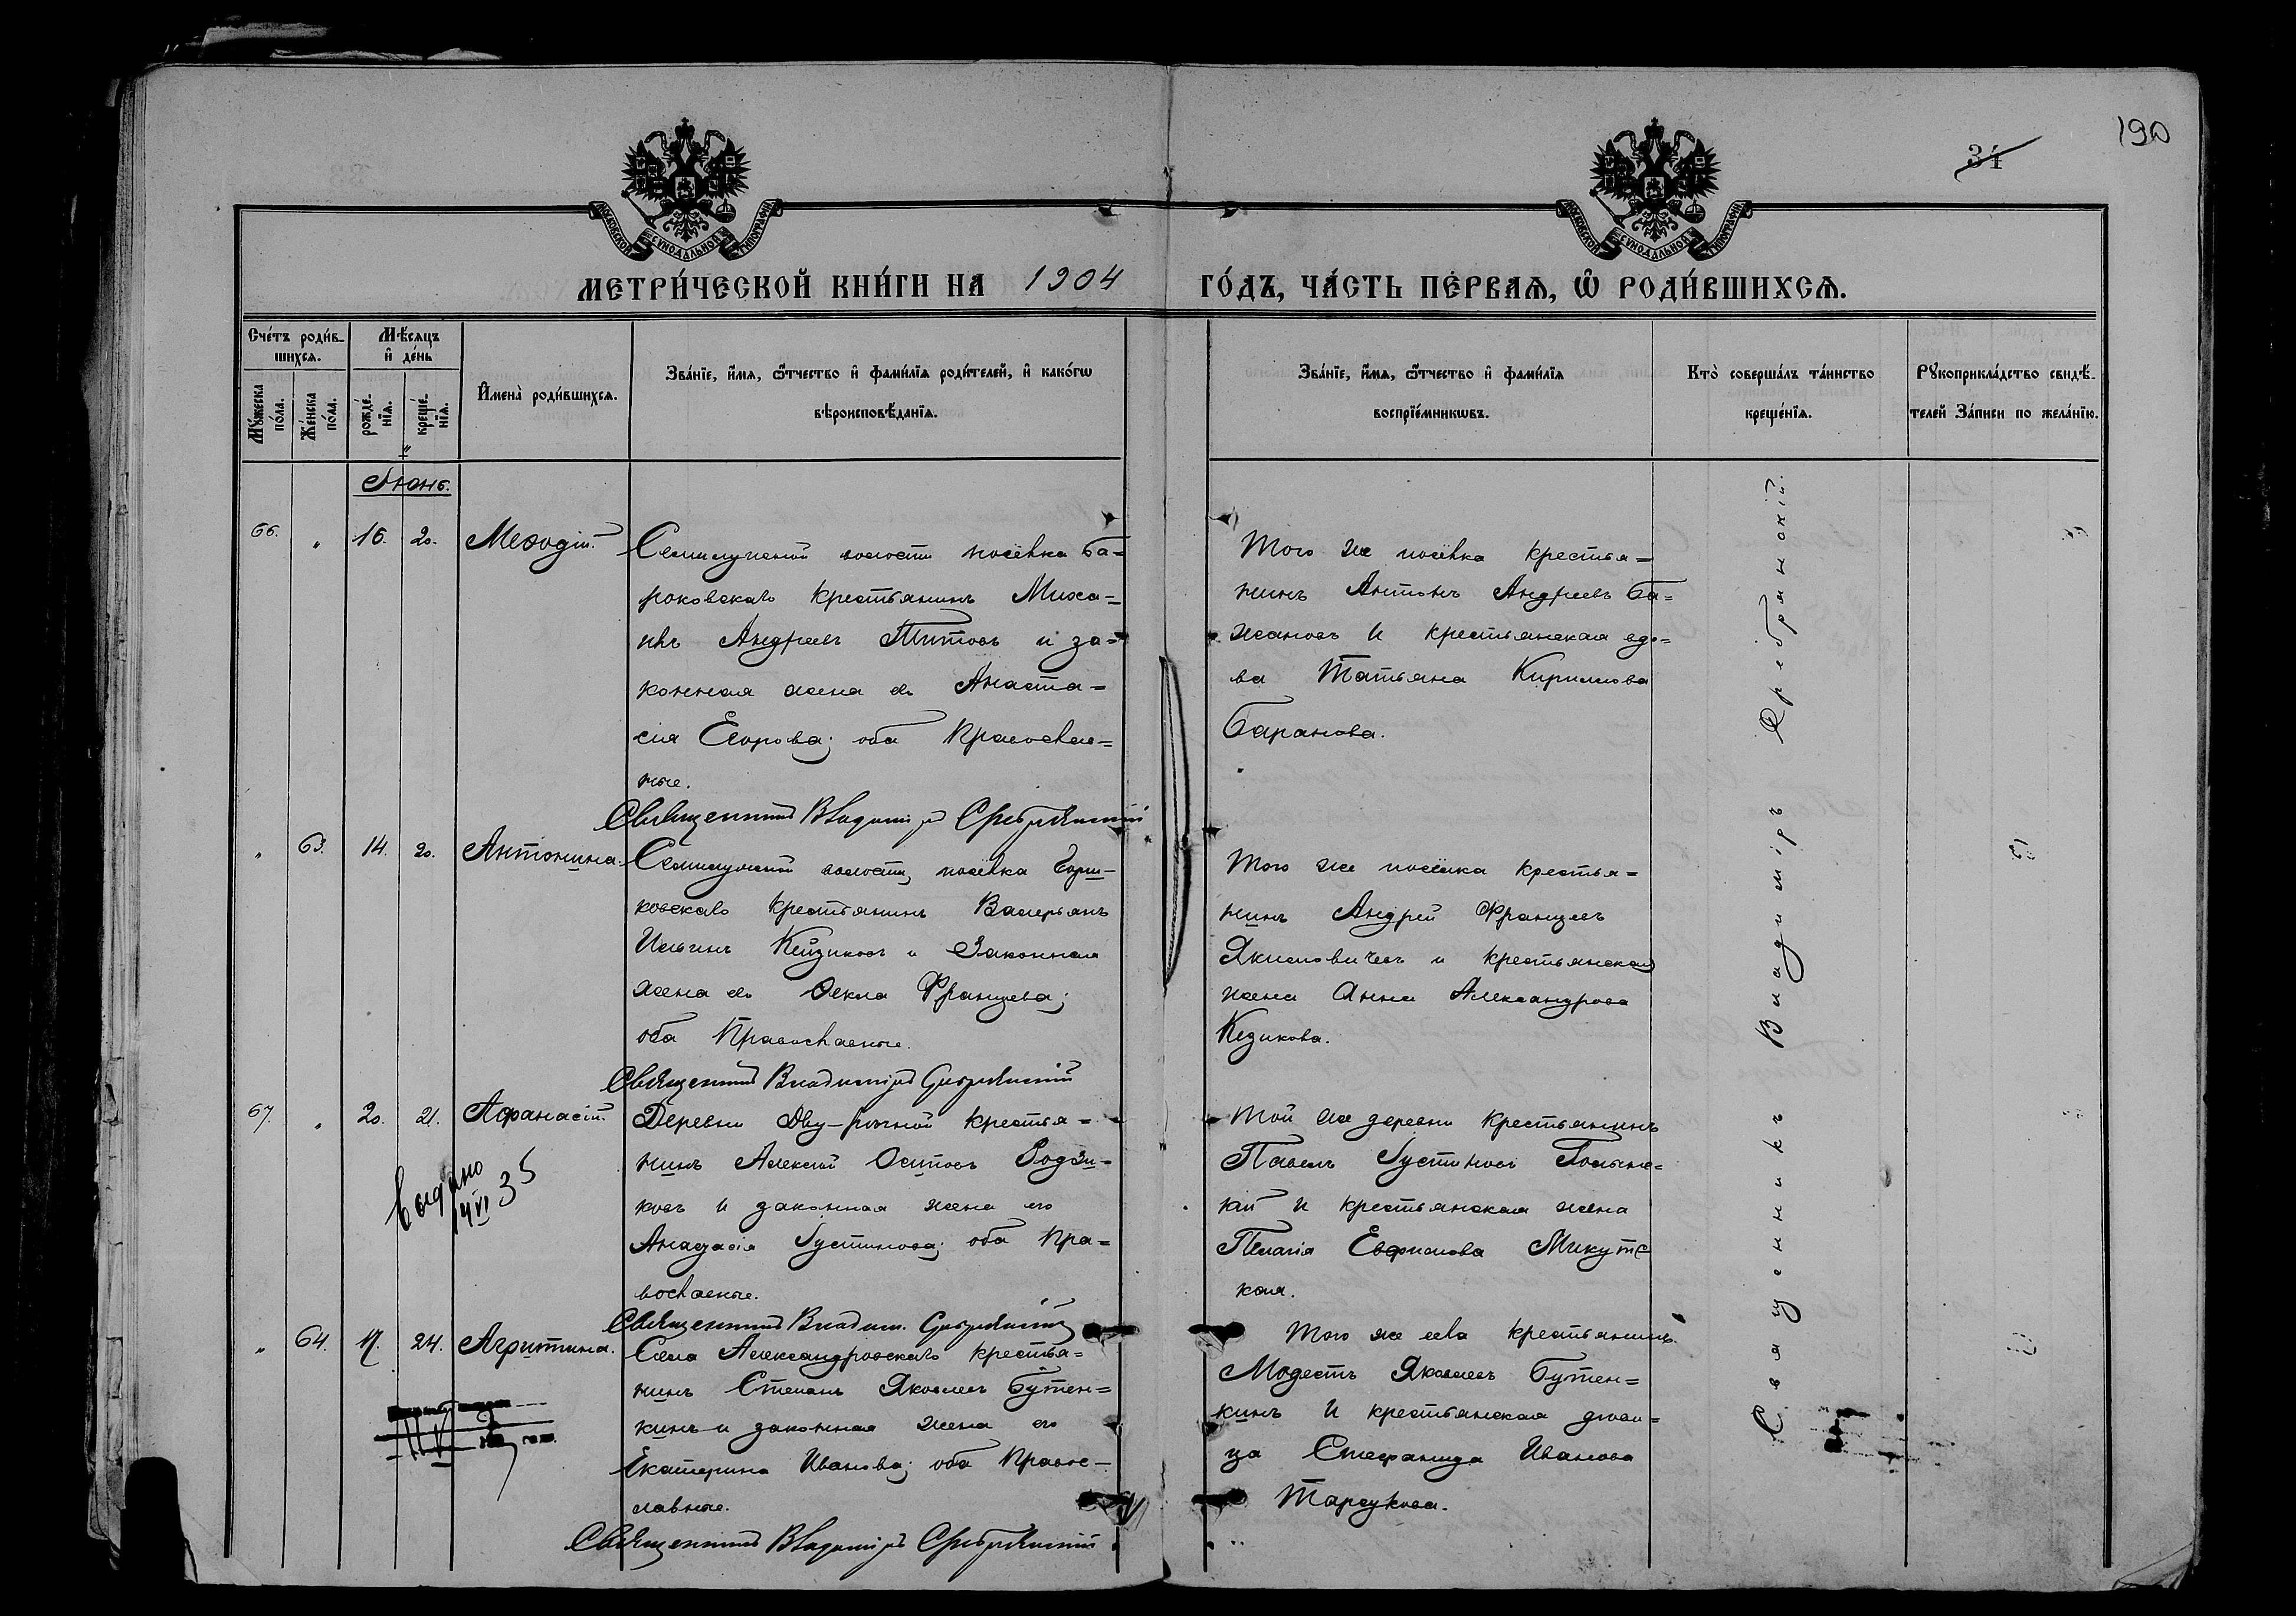 190
34
МОСКОВСКОЙ СѴНОДАЛЬНОЙ ТИПОГРАФІИ
МОСКОВСКОЙ СѴНОДАЛЬНОЙ ТИПОГРАФІИ
МЕТРИ́ЧЕСКОЙ КНИ́ГИ НА 1904 ГО́ДЪ, ЧА́СТЬ ПЕ́РВАѦ, Ѡ҆ РОДИ́ВШИХСѦ.
Сче́тъ роди́в-
шихсѧ.
Мꙋ́жеска по́ла.
Же́нска по́ла.
Мѣ́сѧцъ
и҆ де́нь
рожде́-
нїѧ.
креще́-
нїѧ.
И҆мена̀ роди́вшихсѧ.
Зва́нїе, и҆́мѧ, ѻ҆́тчество и҆ фами́лїѧ роди́телей, и҆ како́гѡ
вѣроисповѣ́данїѧ.
Зва́нїе, и҆́мѧ, ѻ҆́тчество и҆ фами́лїѧ
воспрїе́мникѡвъ.
Кто̀ соверша́лъ та́инство
креще́нїѧ.
Рꙋкоприкла́дство свидѣ́-
телей За́писи по жела́нїю.
Іюнь.
66. " 16. 20. Меѳодій.
Семилужной волости посёлка Ба=
роковскаго крестьянинъ Миха=
илъ Андреевъ Титовъ и за=
конная жена его Анаста=
сія Егорова; оба Православ=
ные.
Священникъ Владиміръ Сребрянскій
Того же посёлка крестья=
нинъ Антонъ Андреевъ Ба=
жановъ и крестьянская вдо=
ва Татьяна Кириллова
Баранова.
" 63. 14. 20. Антонина.
Семилужной волости, посёлка
ковскаго крестьянинъ Валерьянъ
Ильинъ Кейзиковъ и законная
жена его Ѳекла Францева;
оба Православные.
Священникъ Владиміръ Сребрянскій
Того же посёлка крестья=
нинъ Андрей Францевъ
Якимовичевъ и крестьянская
жена Анна Александрова
Кезикова.
67. " 20. 21. Аѳанасій.
Выдано
14 VI 35
Деревни Дву-рѣчной крестья=
нинъ Алексѣй Осиповъ Родзи-
ковъ и законная жена его
Анастасія Густинова; оба Пра=
вославные.
Священникъ Владим. Сребрянскій
Той же деревни крестьянинъ
Павелъ Густиновъ
кій и крестьянская жена
Пелагія Евфимова Микутс
кая.
" 64. 17. 24. Агриппина.
Села Александровскаго крестья=
нинъ Степанъ Яковлевъ Бутен=
кинъ и законная жена его
Екатерина Иванова; оба Право-
славные.
Священникъ Владиміръ Сребрянскій
Того же села крестьянинъ
Модестъ Яковлевъ Бутен=
кинъ и крестьянская дѣви=
ца Стефанида Иванова
Тарсукова.
Священникъ Владиміръ Сребрянскій.